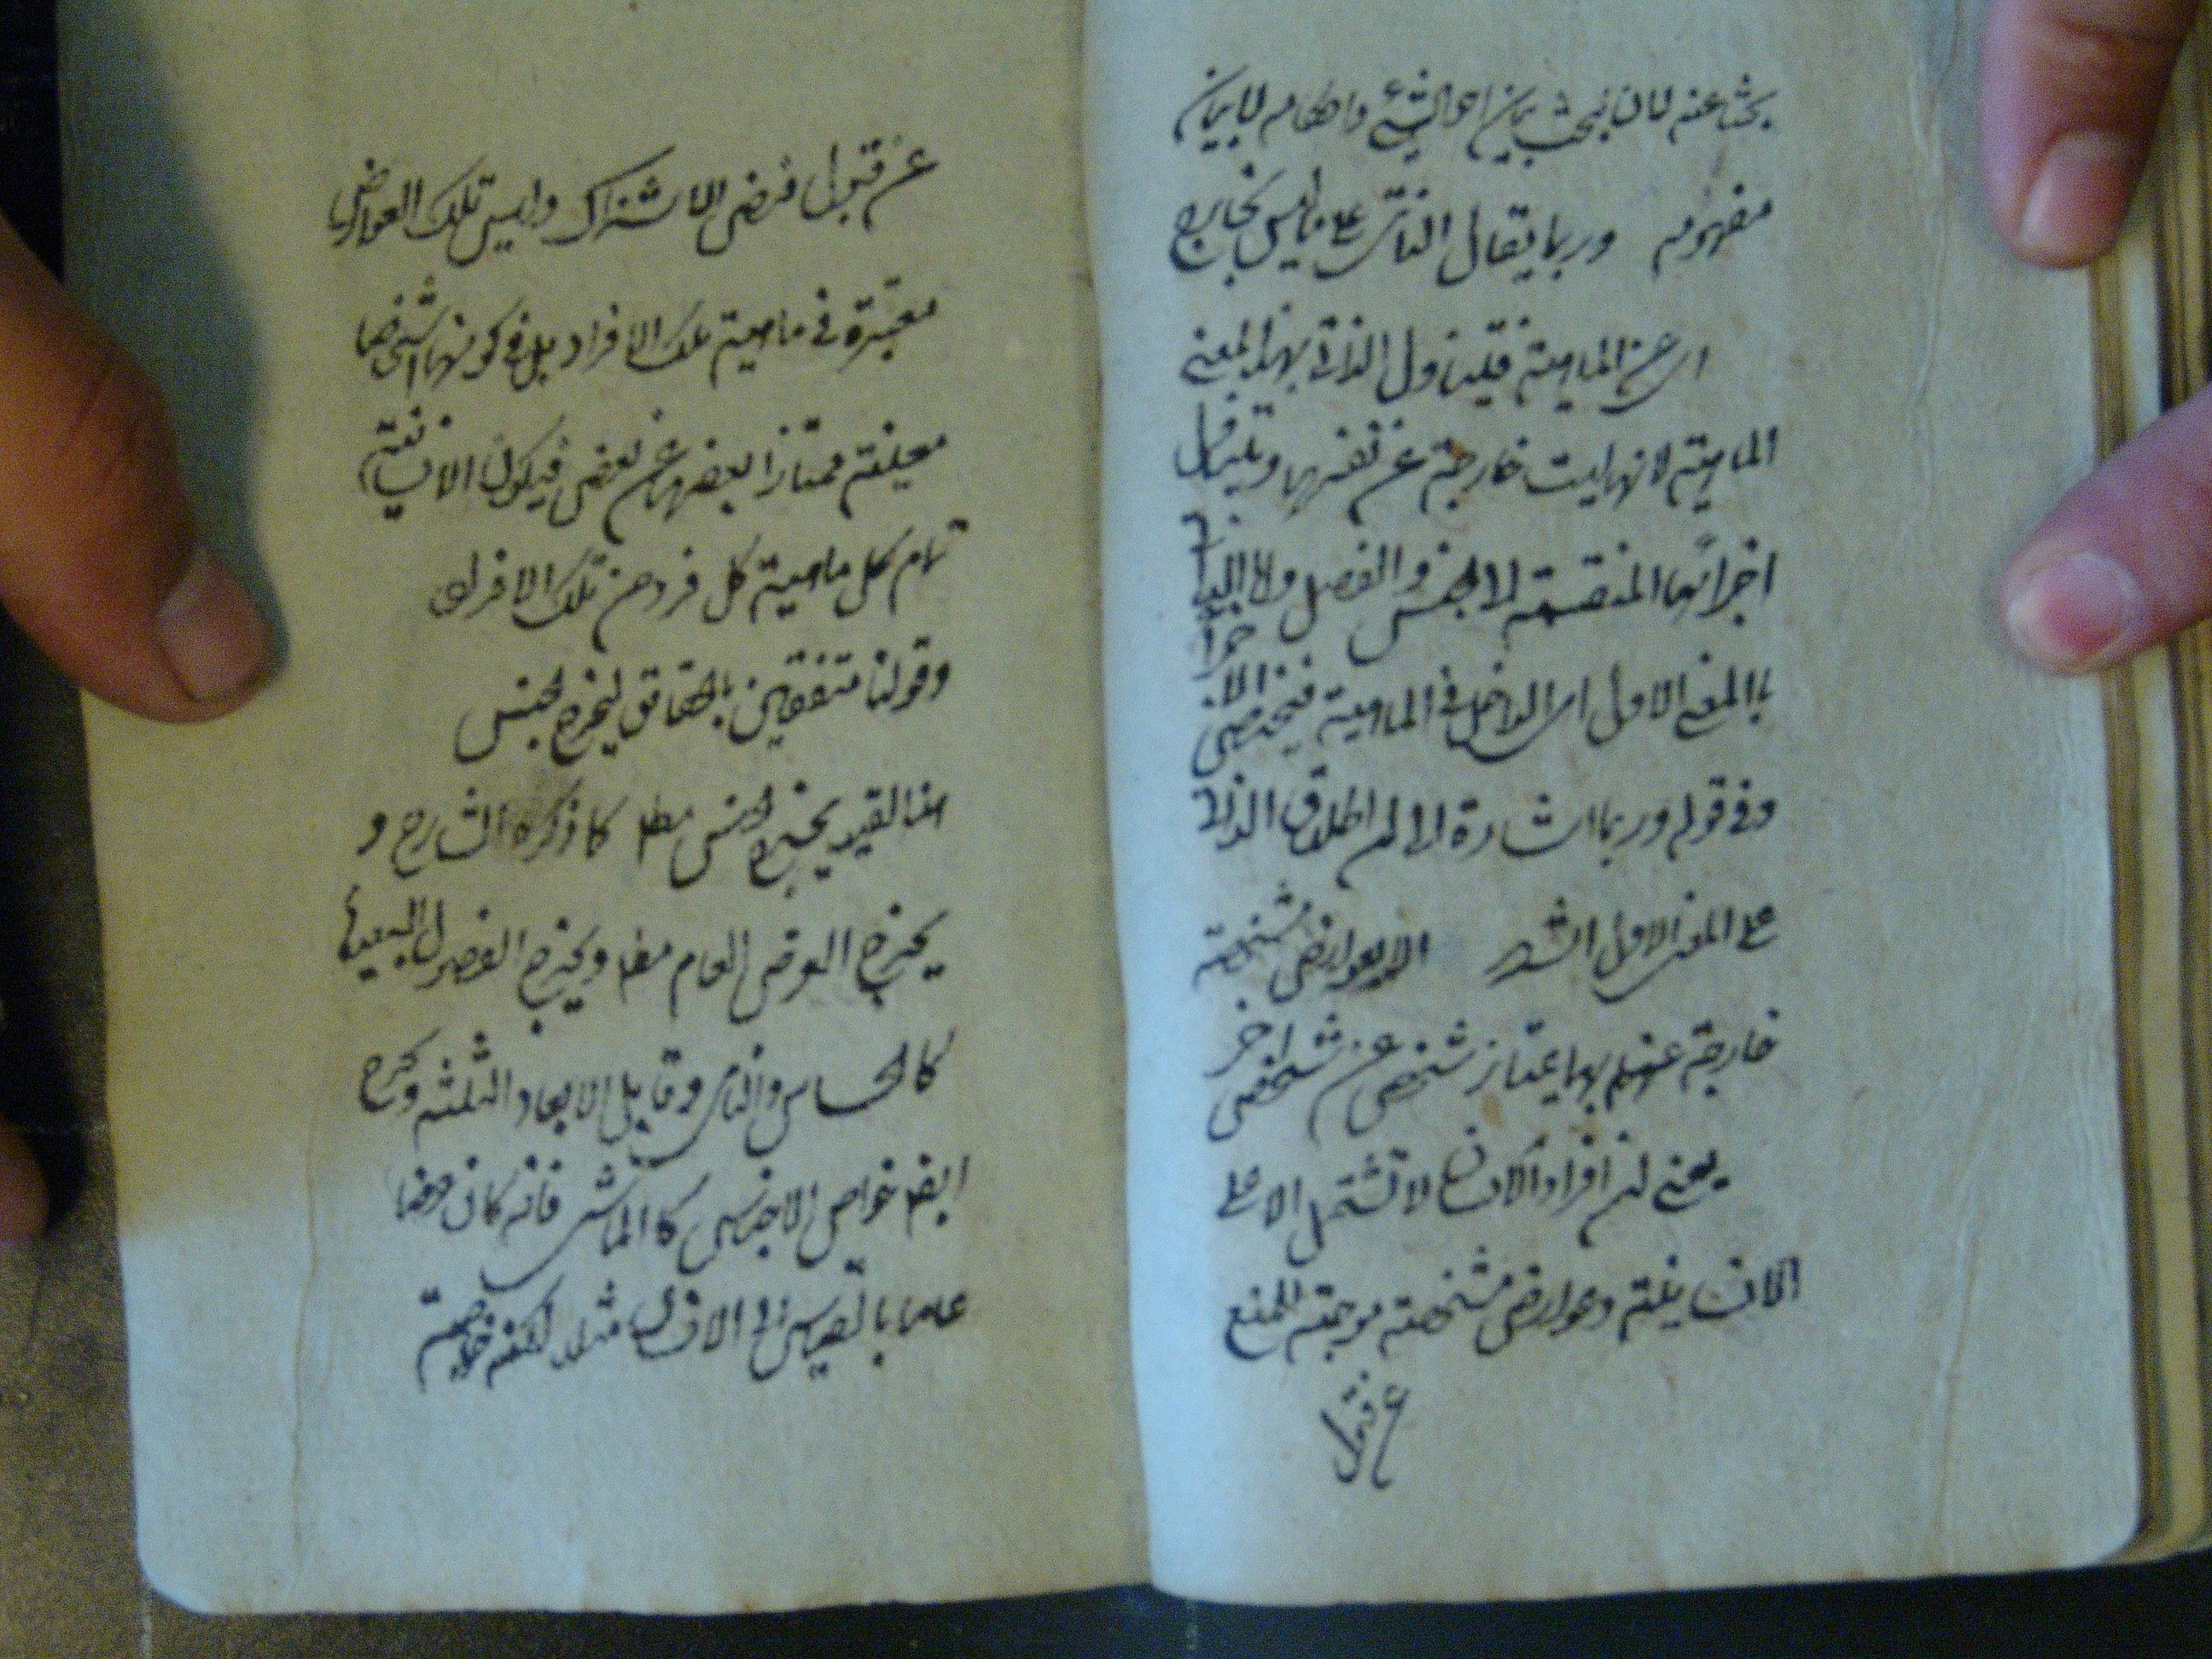 بحثا عنه لان البحث بيان احوال الشئ واحكامه لا بيان
مفهومه وربما يقال الذاتى على ما ليس بخارج
اى عن الماهية فيتناول الذاتى بهذا المعنى
الماهية لانها ليست خارجة عن نفسها ويتناول
اجزائها المنقسمة الى الجنس والفصل ولا
بالمعنى الاول اى الداخل فى الماهية فيختص الاجزاء
وفى قوله وربما اشارة الى اطلاق الذاتى
على المعنى الاول اشهر الا بعوارض مشخصة
خارجة عنها بها يمتاز شخص عن شخص اخر
يعنى ان افراد الانسان لا تشتمل الا على
الانسانية وعوارض مشخصة موجبة للمنع
عن قبول
عن قبول فرض الاشتراك وليس تلك العوارض
معتبرة فى ماهية تلك الافراد بل فى كونها اشخاصا
معينة ممتازا بعضها عن بعض فيكون الانسانية
تمام كل ماهية كل فرد من تلك الافراد
وقولنا متفقين بالحقائق ليخرج الجنس
هذا القيد يخرج الجنس مطلقا كما ذكره الشارح و
يخرج العرض العام ايضا ويخرج الفصول البعيدة
كالحساس والنامى وقابل الابعاد الثلثة ويخرج
ايضا خواص الاجناس كالماشى فانه كان عرضا
عاما بالقياس الى الانسان مثلا لكنه خاصة